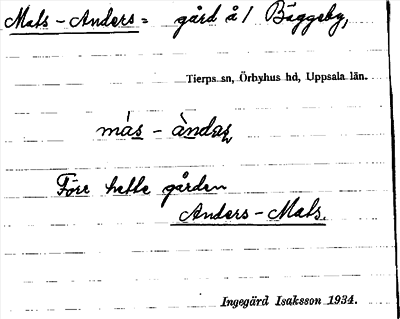 Mats-Anders = gård å/ Bäggeby,
Tierps sn, Örbyhus hd, Uppsala län.
más - àndaʂ
Förr hette gården
Anders-Mats.
Ingegärd Isaksson 1934.